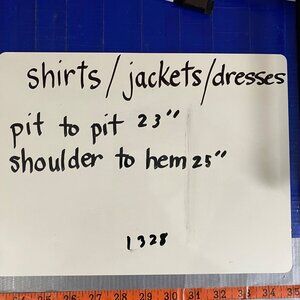 shirts/jackets/dresses
pit to pit 23"
shoulder to hem 25"
1328
26 27 28 29 30 31 32 33 34 35